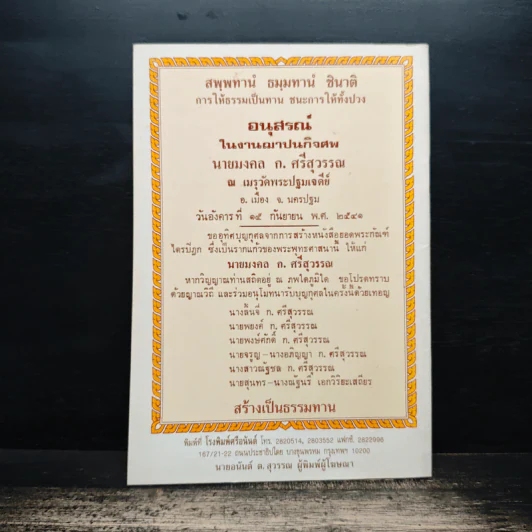 สพฺพทานํ ธมฺมทานํ ชินาติ
การให้ธรรมเป็นทาน ชนะการให้ทั้งปวง
อนุสรณ์
ในงานฌาปนกิจศพ
นายมงคล ก. ศรีสุวรรณ
ณ เมรุวัดพระปฐมเจดีย์
อ. เมือง จ. นครปฐม
วันอังคารที่ ๑๕ กันยายน พ.ศ. ๒๕๔๑
ขออุทิศบุญกุศลจากการสร้างหนังสือยอดพระกัณฑ์
ไตรปิฎก ซึ่งเป็นรากแก้วของพระพุทธศาสนานี้ ให้แก่
นายมงคล ก. ศรีสุวรรณ
หากวิญญาณท่านสถิตอยู่ ณ ภพใดภูมิใด ขอโปรดทราบ
ด้วยญาณวิถี และร่วมอนุโมทนารับบุญกุศลในครั้งนี้ด้วยเทอญ
นางลินจี่ ก. ศรีสุวรรณ
นายพยงค์ ก. ศรีสุวรรณ
นายพงษ์ศักดิ์ ก. ศรีสุวรรณ
นายจรูญ-นางอภิญญา ก. ศรีสุวรรณ
นางสาวณัฐชล ก. ศรีสุวรรณ
นายสุนทร-นางณัฐนรี เอกวิริยะเสถียร
สร้างเป็นธรรมทาน
พิมพ์ที่ โรงพิมพ์ศรีอนันต์ โทร. 2820514, 2803552 แฟกซ์. 2822998
167/21-22 ถนนประชาธิปไตย บางขุนพรหม กรุงเทพฯ 10200
นายอนันต์ ต. สุวรรณ ผู้พิมพ์ผู้โฆษณา